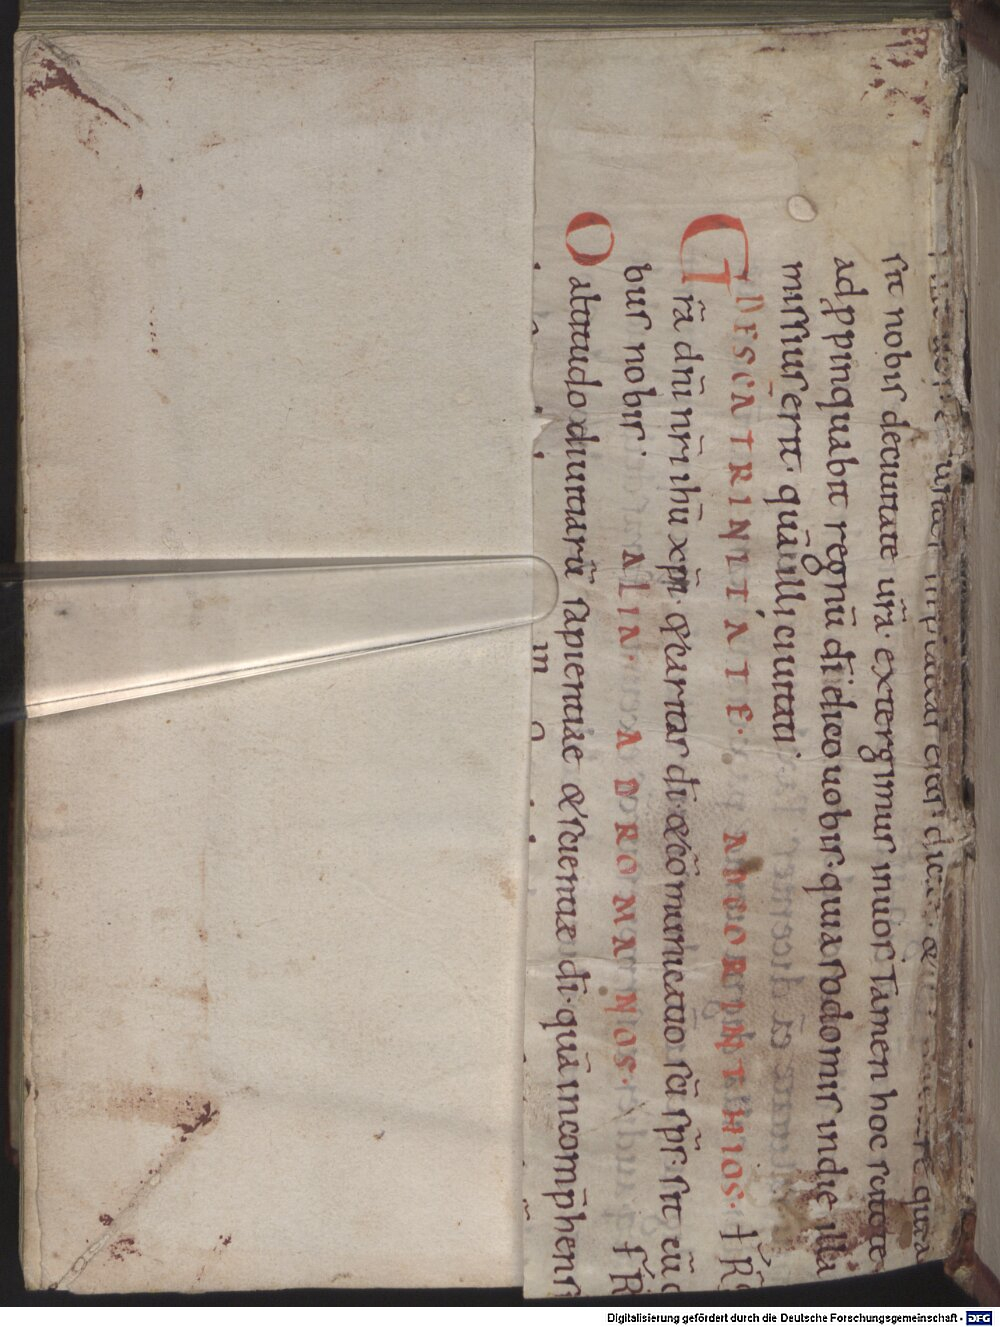 dicite &
sit nobis deciuitate ur̄a. extergimus inuos. Tamen hoc scitote
adp̱pinquabit regnū dī dico uobis. quia sodomis indie illa
missius erit. quā illi ciuitati
DE SC̄A TRINITATE. AD CORINTHIOS. FR̄
Gr̄a dn̄i nr̄i ihū xp̄i. & caritas dī. & cōmunicatio sc̄i sp̄s. sit cū
bus nobis ALIA. AD ROMANOS. FR̄
O altitudo diuitiarū sapientiae & scientiae dī. quā incomp̄hens
in
Digitalisierung gefördert durch die Deutsche Forschungsgemeinschaft - DFG